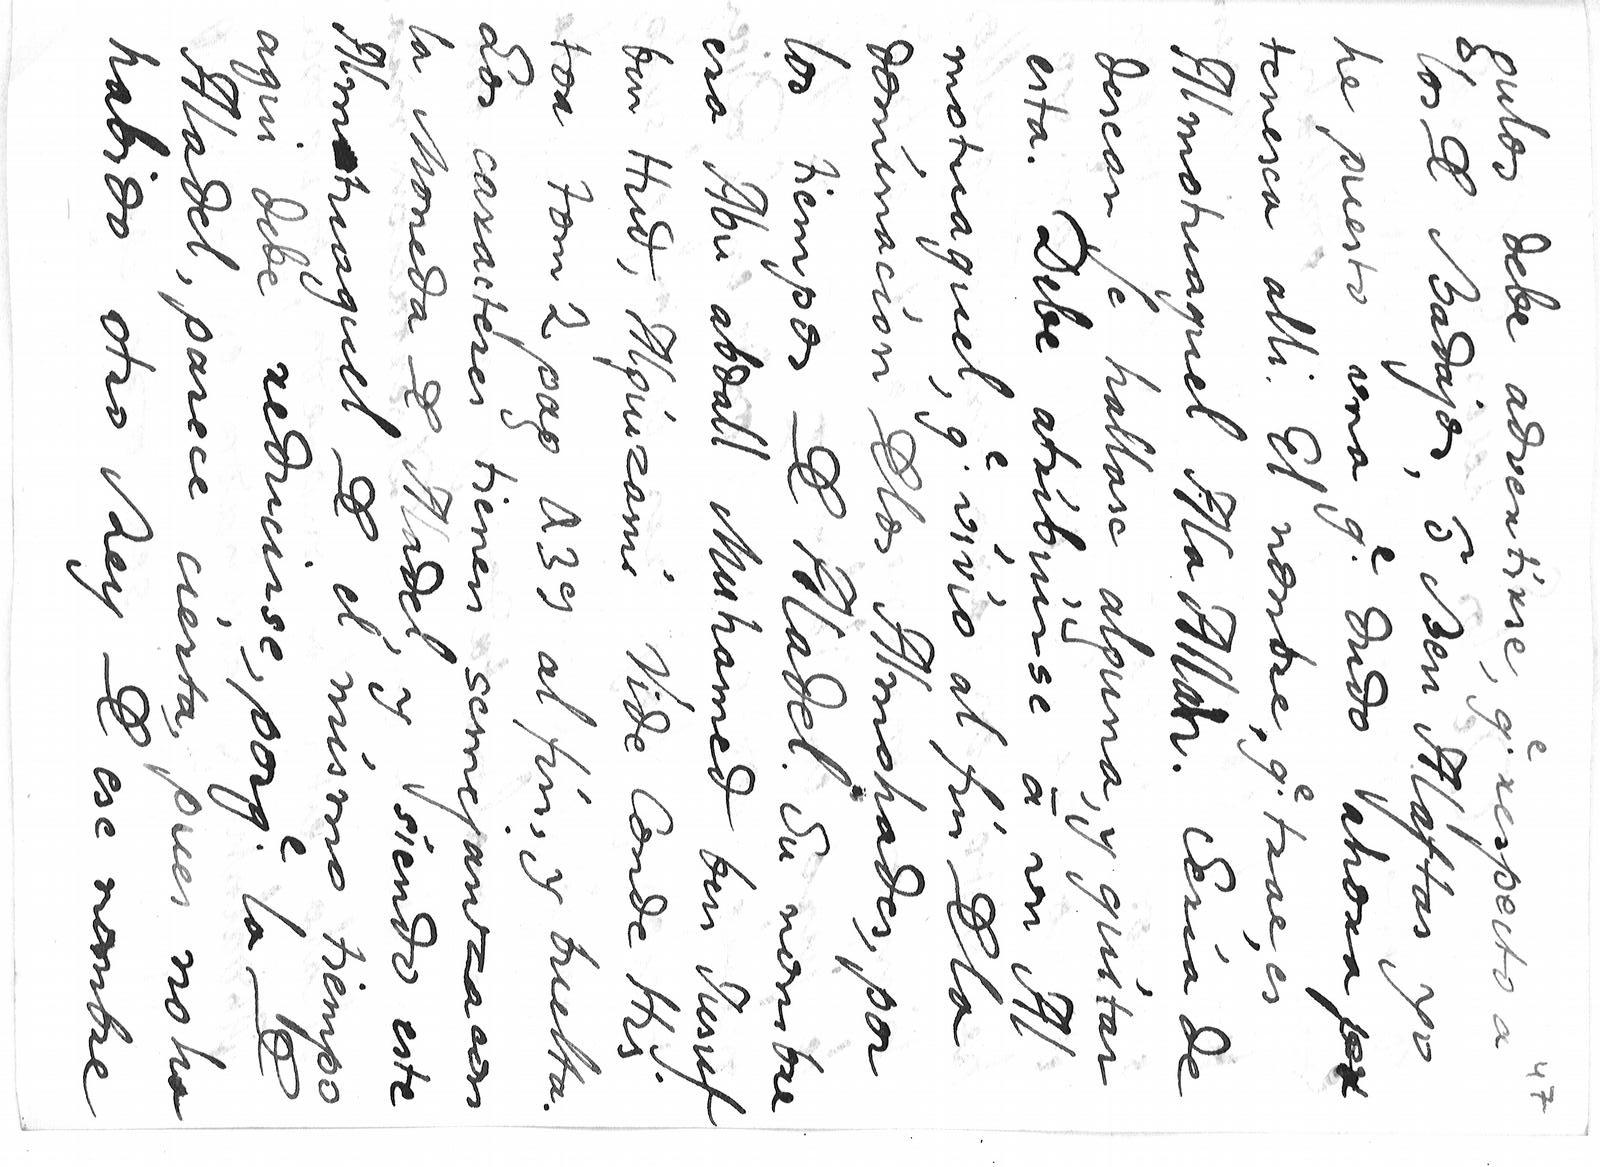 47
gulos debe advertirse, q.e respecto a
los D Badajos, ó Ben Alaftas yo
he puesto una q.e dudo ahora per
tenesca alli. El nombre, q.e trae, es
Almotuaquel Ala Allah. Seria de
desear se hallase alguna, y quitar
esta. Debe atribuirse a un Al
motuaquel, q.e vivio al fin D la
dominacion D los Almohades, por
los tiempos D Aladel. Su nombre
era Abu abdall Muhamed ben Jusuf
ben Hud, Algiuzami Vide Conde His
toa tom 2 pag 439 al fin, y buelta.
Los carracteres tienen semejanza con
la Moneda D Aladel y siendo este
Almotuaquel D el mismo tiempo
aqui debe reducirse, porq.e la D
Aladel, parece cierta, pues no ha
habido otro Rey D ese nombre